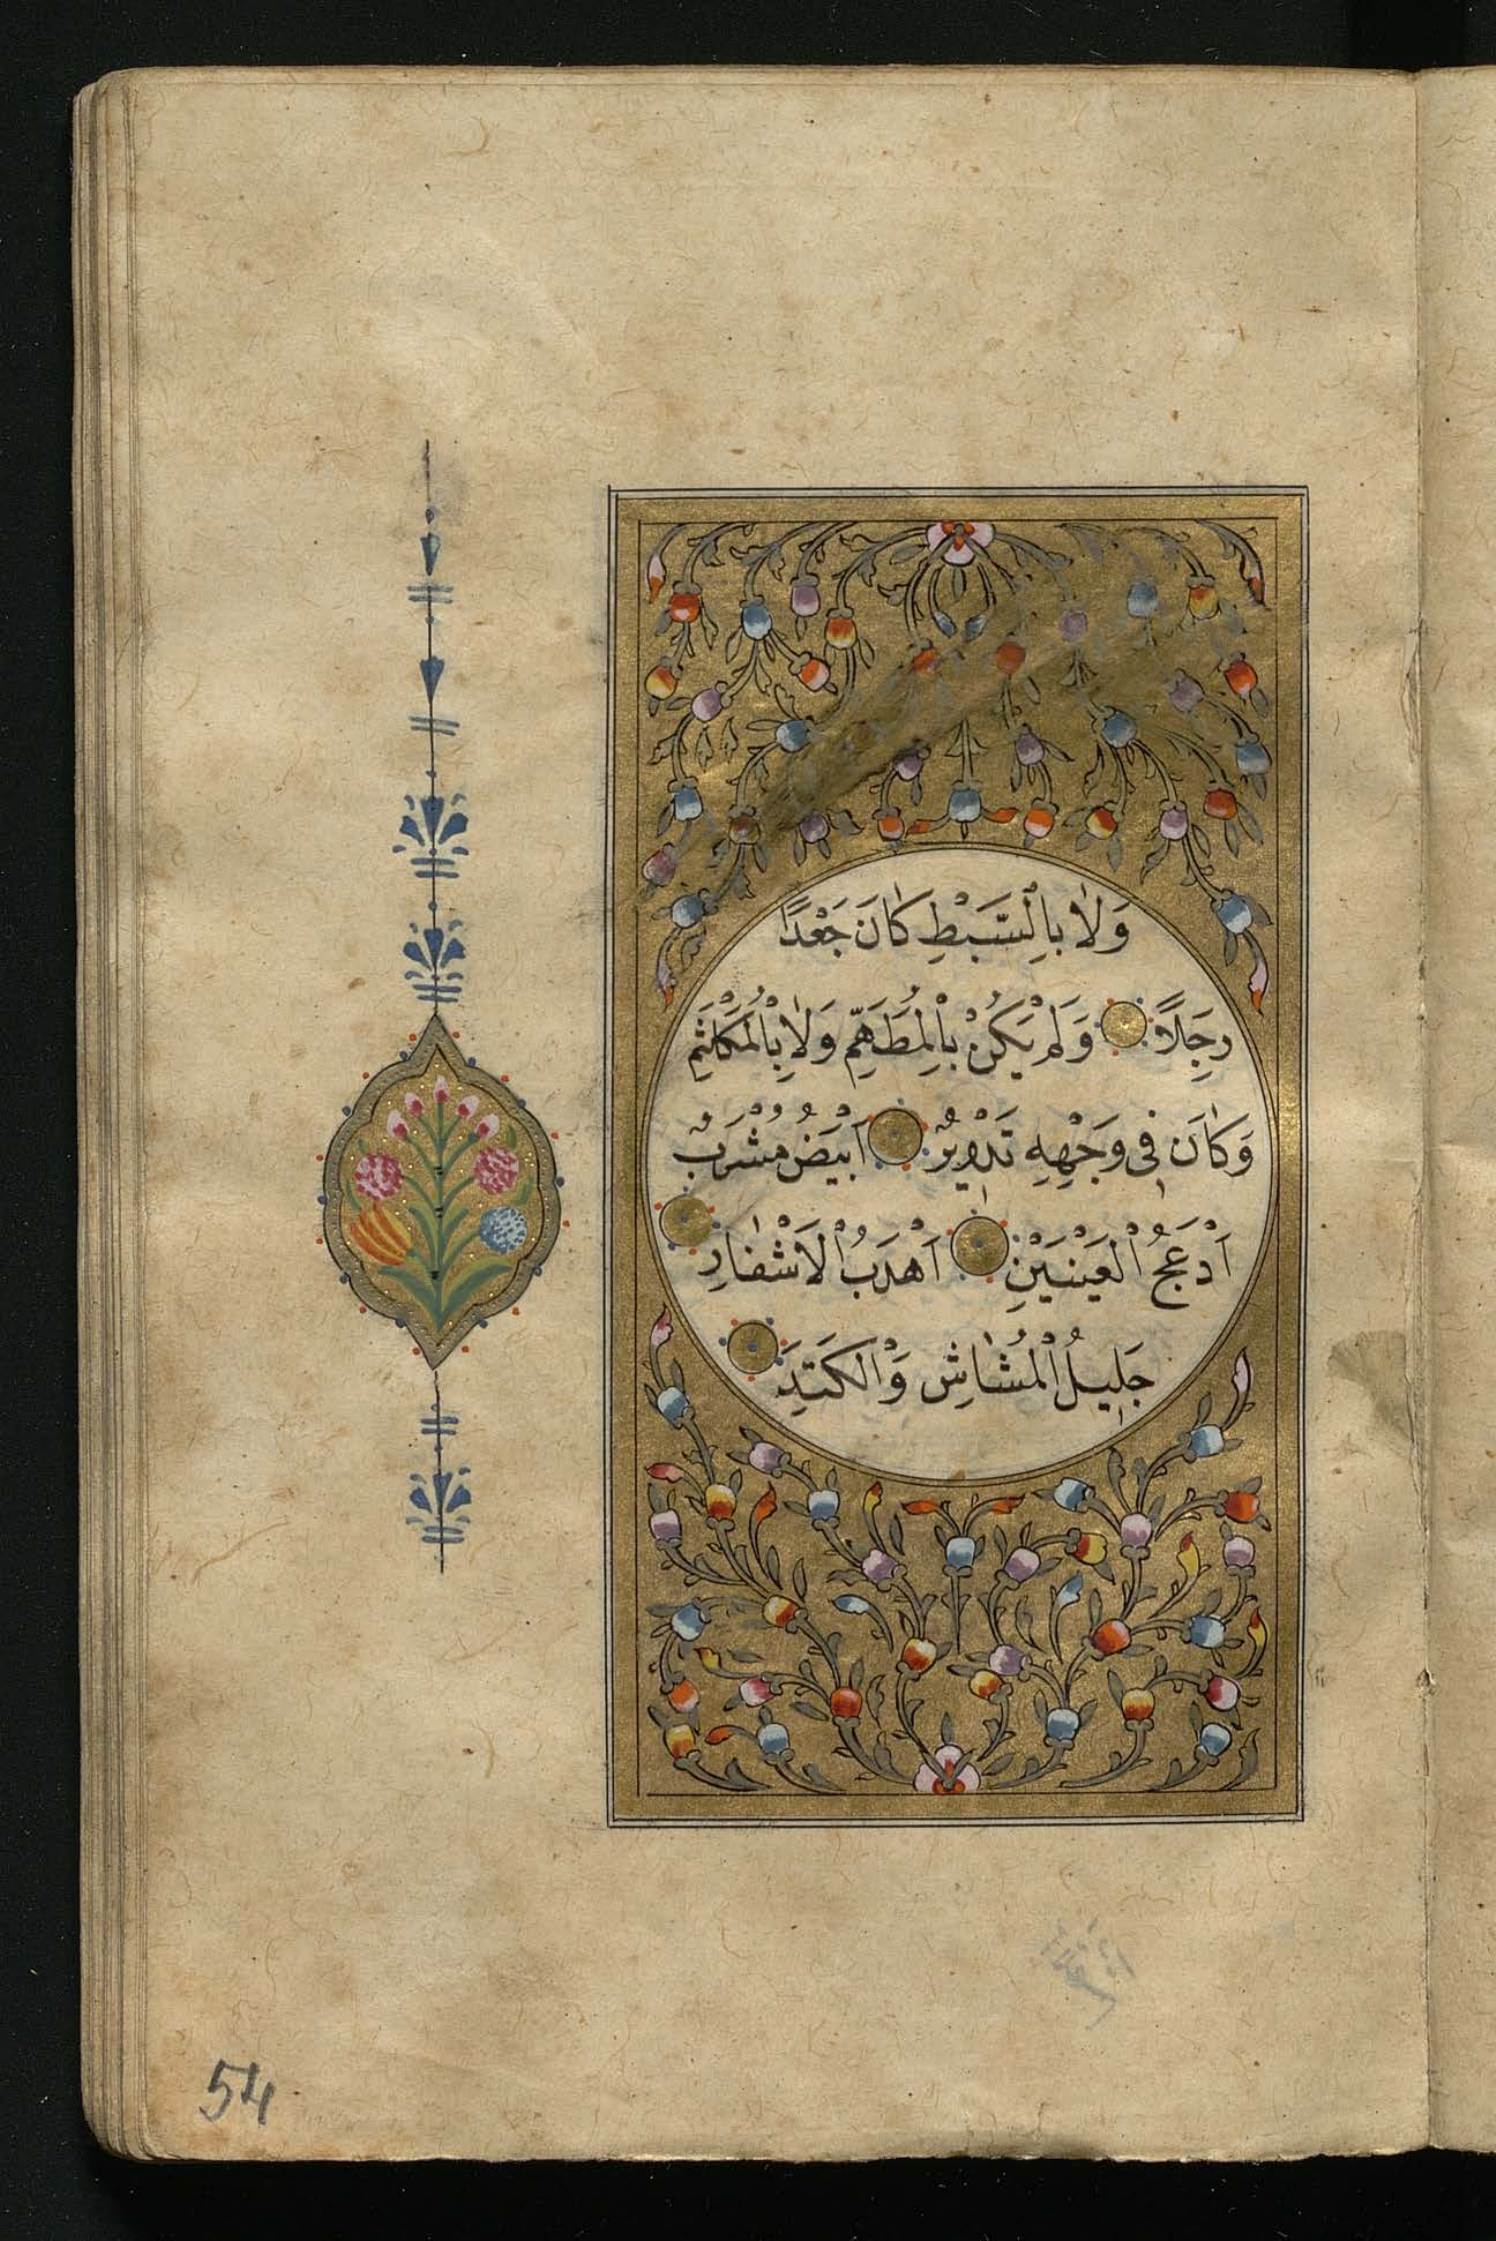 وَلَا بِالسَّبَطِ كَانَ جَعْدًا
رَجِلًا وَلَمْ يَكُنْ بِالْمُطَهَّمِ وَلَا بِالْمُكَلْثَمِ
وَكَانَ فِي وَجْهِهِ تَدْوِيرٌ اَبْيَضُ مُشْرَبٌ
اَدْعَجُ الْعَيْنَيْنِ اَهْدَبُ الْاَشْفَارِ
جَلِيلُ الْمُشَاشِ وَالْكَتَدِ
54